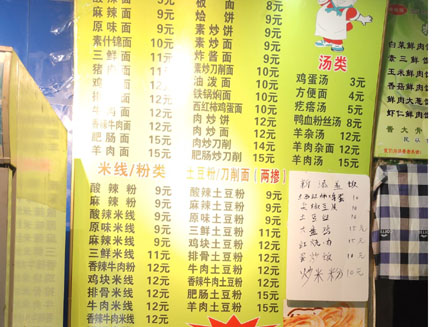 麻辣面 9元
原味面 9元
素什锦面 10元
三鲜面 11元
香辣牛肉面 12元
牛肉面 12元
肥肠面 15元
羊肉面 15元
米线/粉类
酸辣粉 9元
麻辣粉 9元
酸辣米线 9元
原味米线 9元
麻辣米线 9元
三鲜米线 11元
香辣牛肉粉 12元
鸡块米线 12元
排骨米线 12元
牛肉米线 12元
香辣牛肉米线 12元
烩饼 9元
素炒饼 9元
素炒面 9元
炸酱面 9元
素炒刀削面 10元
油泼面 10元
铁锅焖面 10元
西红柿鸡蛋面 10元
肉炒饼 12元
肉炒面 12元
肉炒刀削面 14元
肥肠炒刀削面 15元
土豆粉/刀削面(两掺)
酸辣土豆粉 9元
麻辣土豆粉 9元
原味土豆粉 9元
三鲜土豆粉 11元
鸡块土豆粉 12元
排骨土豆粉 12元
牛肉土豆粉 12元
肥肠土豆粉 15元
羊肉土豆粉 15元
汤类
鸡蛋汤 3元
方便面 4元
疙瘩汤 5元
鸭血粉丝汤 8元
羊杂汤 12元
羊杂面 15元
羊肉汤 15元
炒米粉 10元
白菜鲜肉
素三鲜
玉米鲜肉
香菇鲜肉
鲜肉大葱
虾仁鲜肉